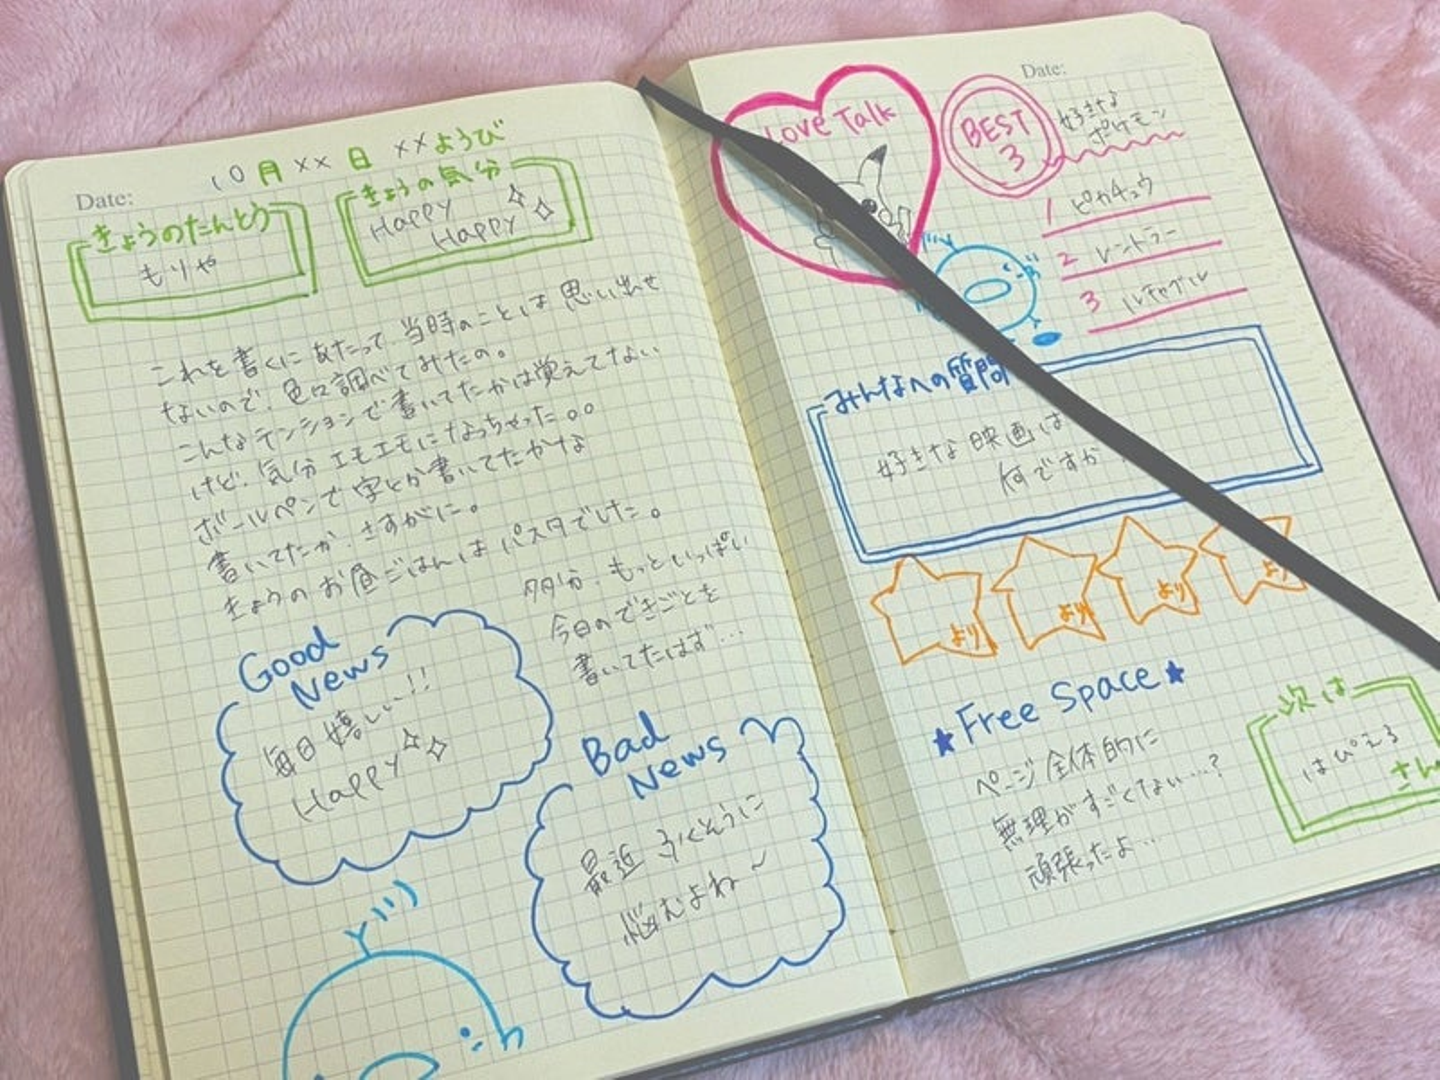 Date:
10月××日 ××ようび
きょうのたんとう
もりや
きょうの気分
Happy
Happy
これを書くにあたって、当時のことは思い出せ
ないので、色々調べてみたの。
こんなテンションで書いてたかは覚えてない
けど、気分エモエモになっちゃった。。
ボールペンで字とか書いてたかな
書いてたか、さすがに。
きょうのお昼ごはんは パスタでした。
多分、もっといっぱい
今日のできごとを
書いてたはず…
Good
News
毎日嬉しい!!
Happy
Bad
News
最近
悩むよね~
Date:
Love Talk
BEST
3
好きな
ポケモン
1 ピカチュウ
2 レントラー
3 ルチャブル
みんなへの質問
好きな映画は
何ですか
より
より
より
より
★Free Space★
ページ全体的に
無理がすごくない…?
頑張ったよ…
次は
はぴえる
さん